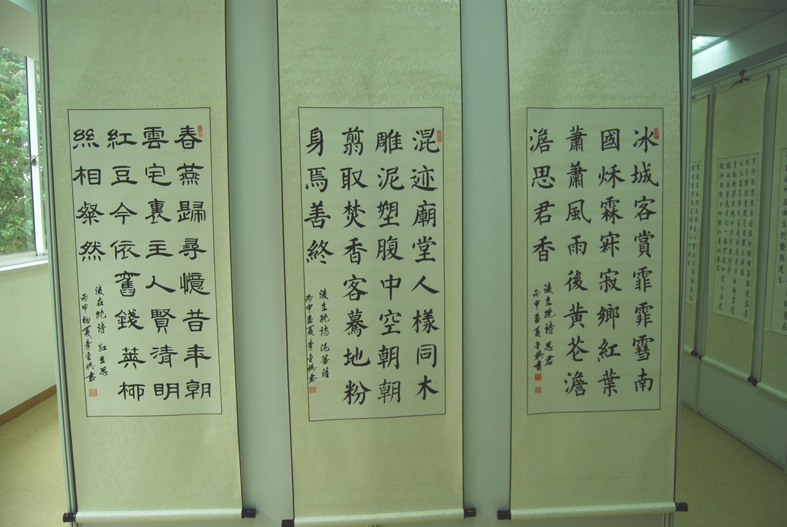 冰城客賞霏霏雪南
國秋霖寂寂鄉紅葉
蕭蕭風雨後黃花澹
澹思君香
詩 思君
丙申 夏 書
混迹廟堂人樣同木
雕泥塑腹中空朝朝
翦取焚香客驀地粉
身焉善終
詩 泥菩薩
丙申 夏 李 書
春燕歸尋憶昔年朝
雲宅裏主人賢清明
紅豆今依舊錢莢柳
絲相粲然
詩 紅豆思
丙申初夏李 書